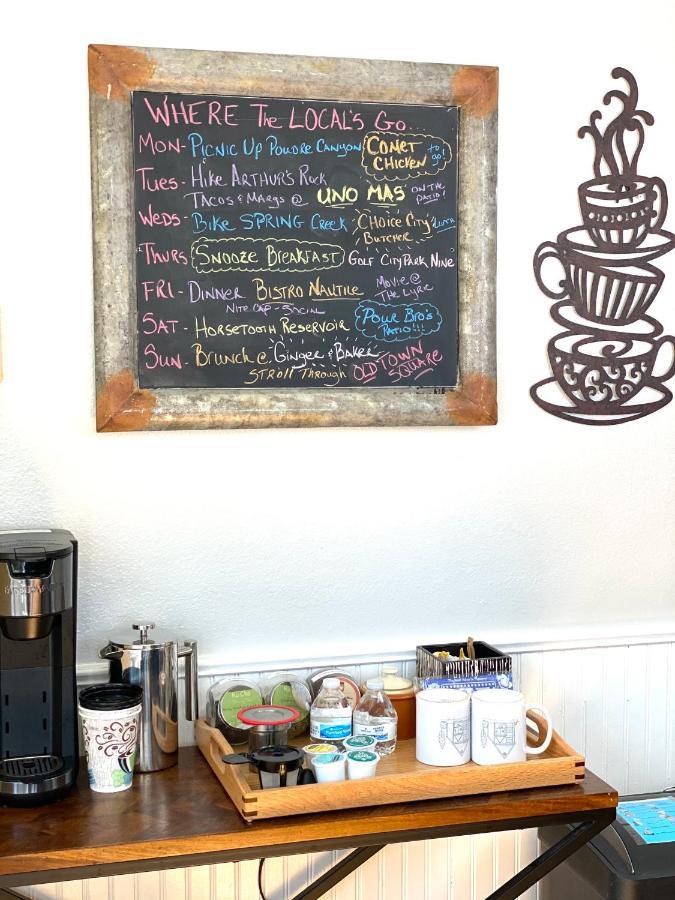 WHERE The LOCAL'S Go...
MON- PICNIC UP POUDRE CANYON COMET CHICKEN to go!
TUES- HIKE ARTHUR'S ROCK
TACOS & MARGS @ UNO MAS ON THE PATIO!
WEDS- BIKE SPRING CREEK CHOICE CITY BUTCHER LUNCH
THURS SNOOZE BREAKFAST GOLF CITY PARK NINE
FRI- DINNER BISTRO NAUTILE MOVIE @ THE LYRIC
NITE CAP - SOCIAL
SAT- HORSETOOTH RESERVOIR POUR BRO'S PATIO!!!
SUN- BRUNCH @ GINGER & BAKER
STROLL THROUGH OLD TOWN SQUARE